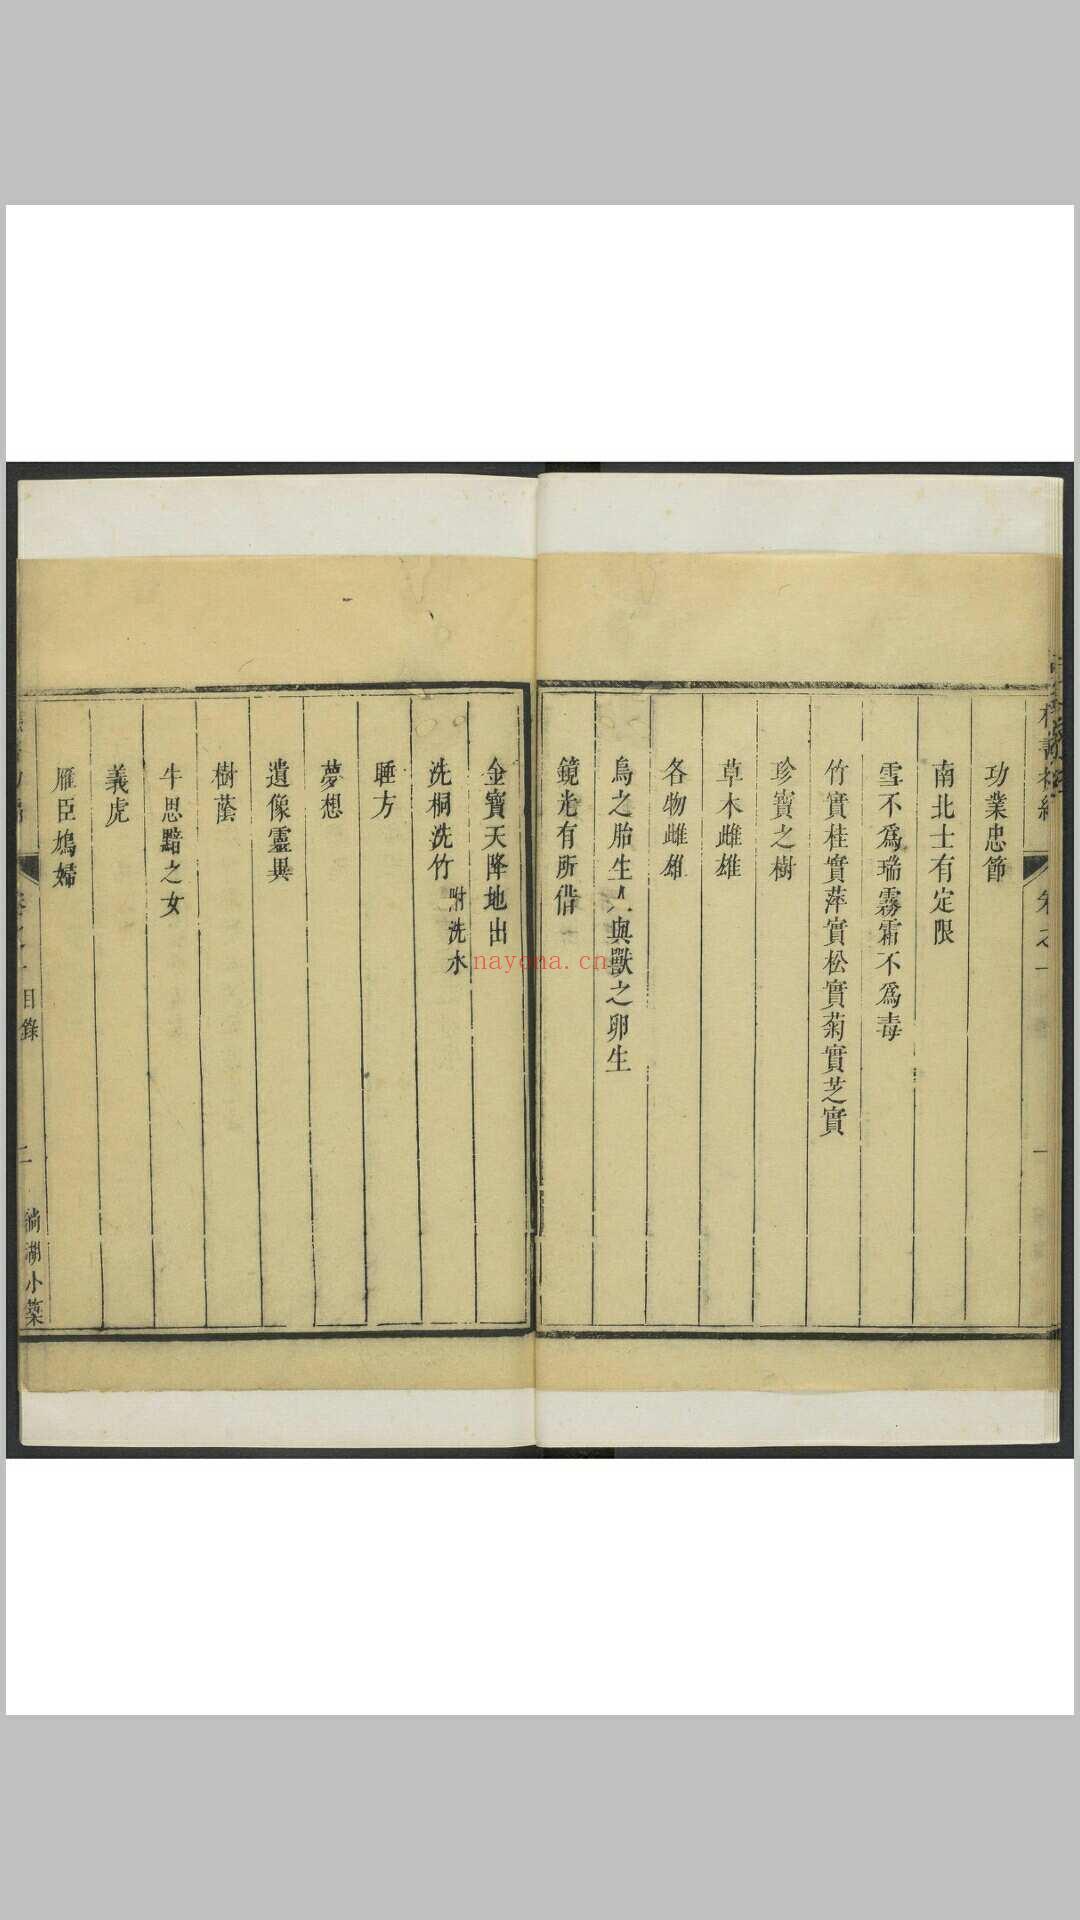 功業忠節
南北士有定限
雪不爲瑞霧霜不爲毒
竹實桂實萍實松實菊實芝實
珍寶之樹
草木雌雄
各物雌雄
鳥之胎生人與獸之卵生
鏡光有所借
金寶天降地出
洗桐洗竹 附洗水
睡方
夢想
遺像靈異
樹蔭
牛思黯之女
義虎
雁臣鳩婦
目錄
二
淌湖小築
nayona.cn